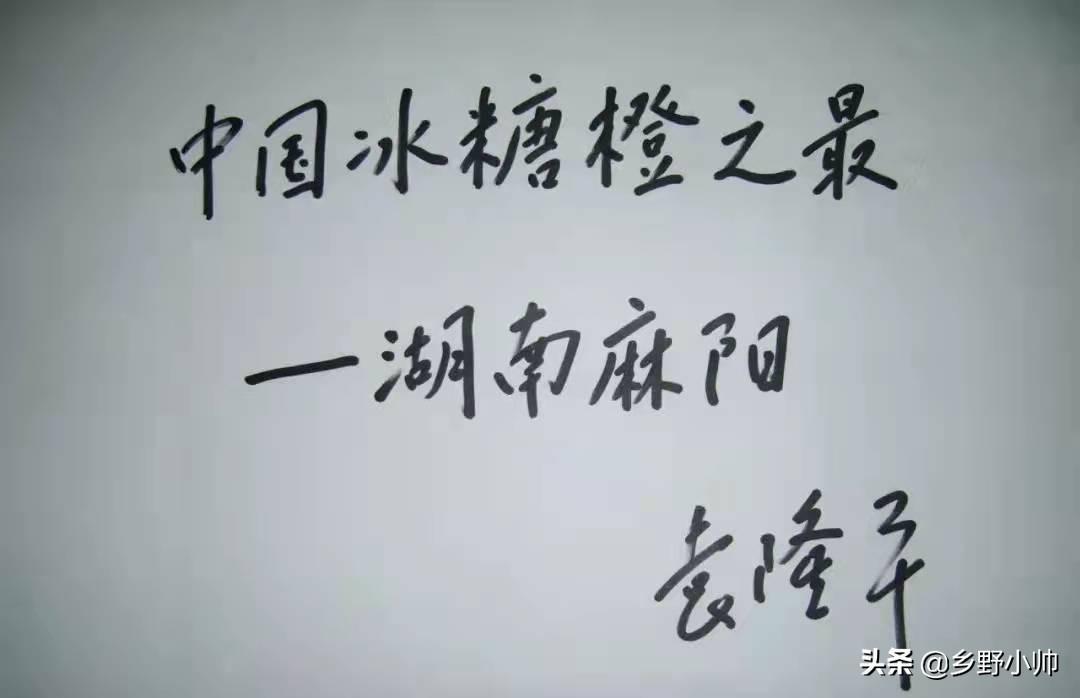 中国冰糖橙之最
—湖南麻阳
袁隆平
头条 @乡野小帅